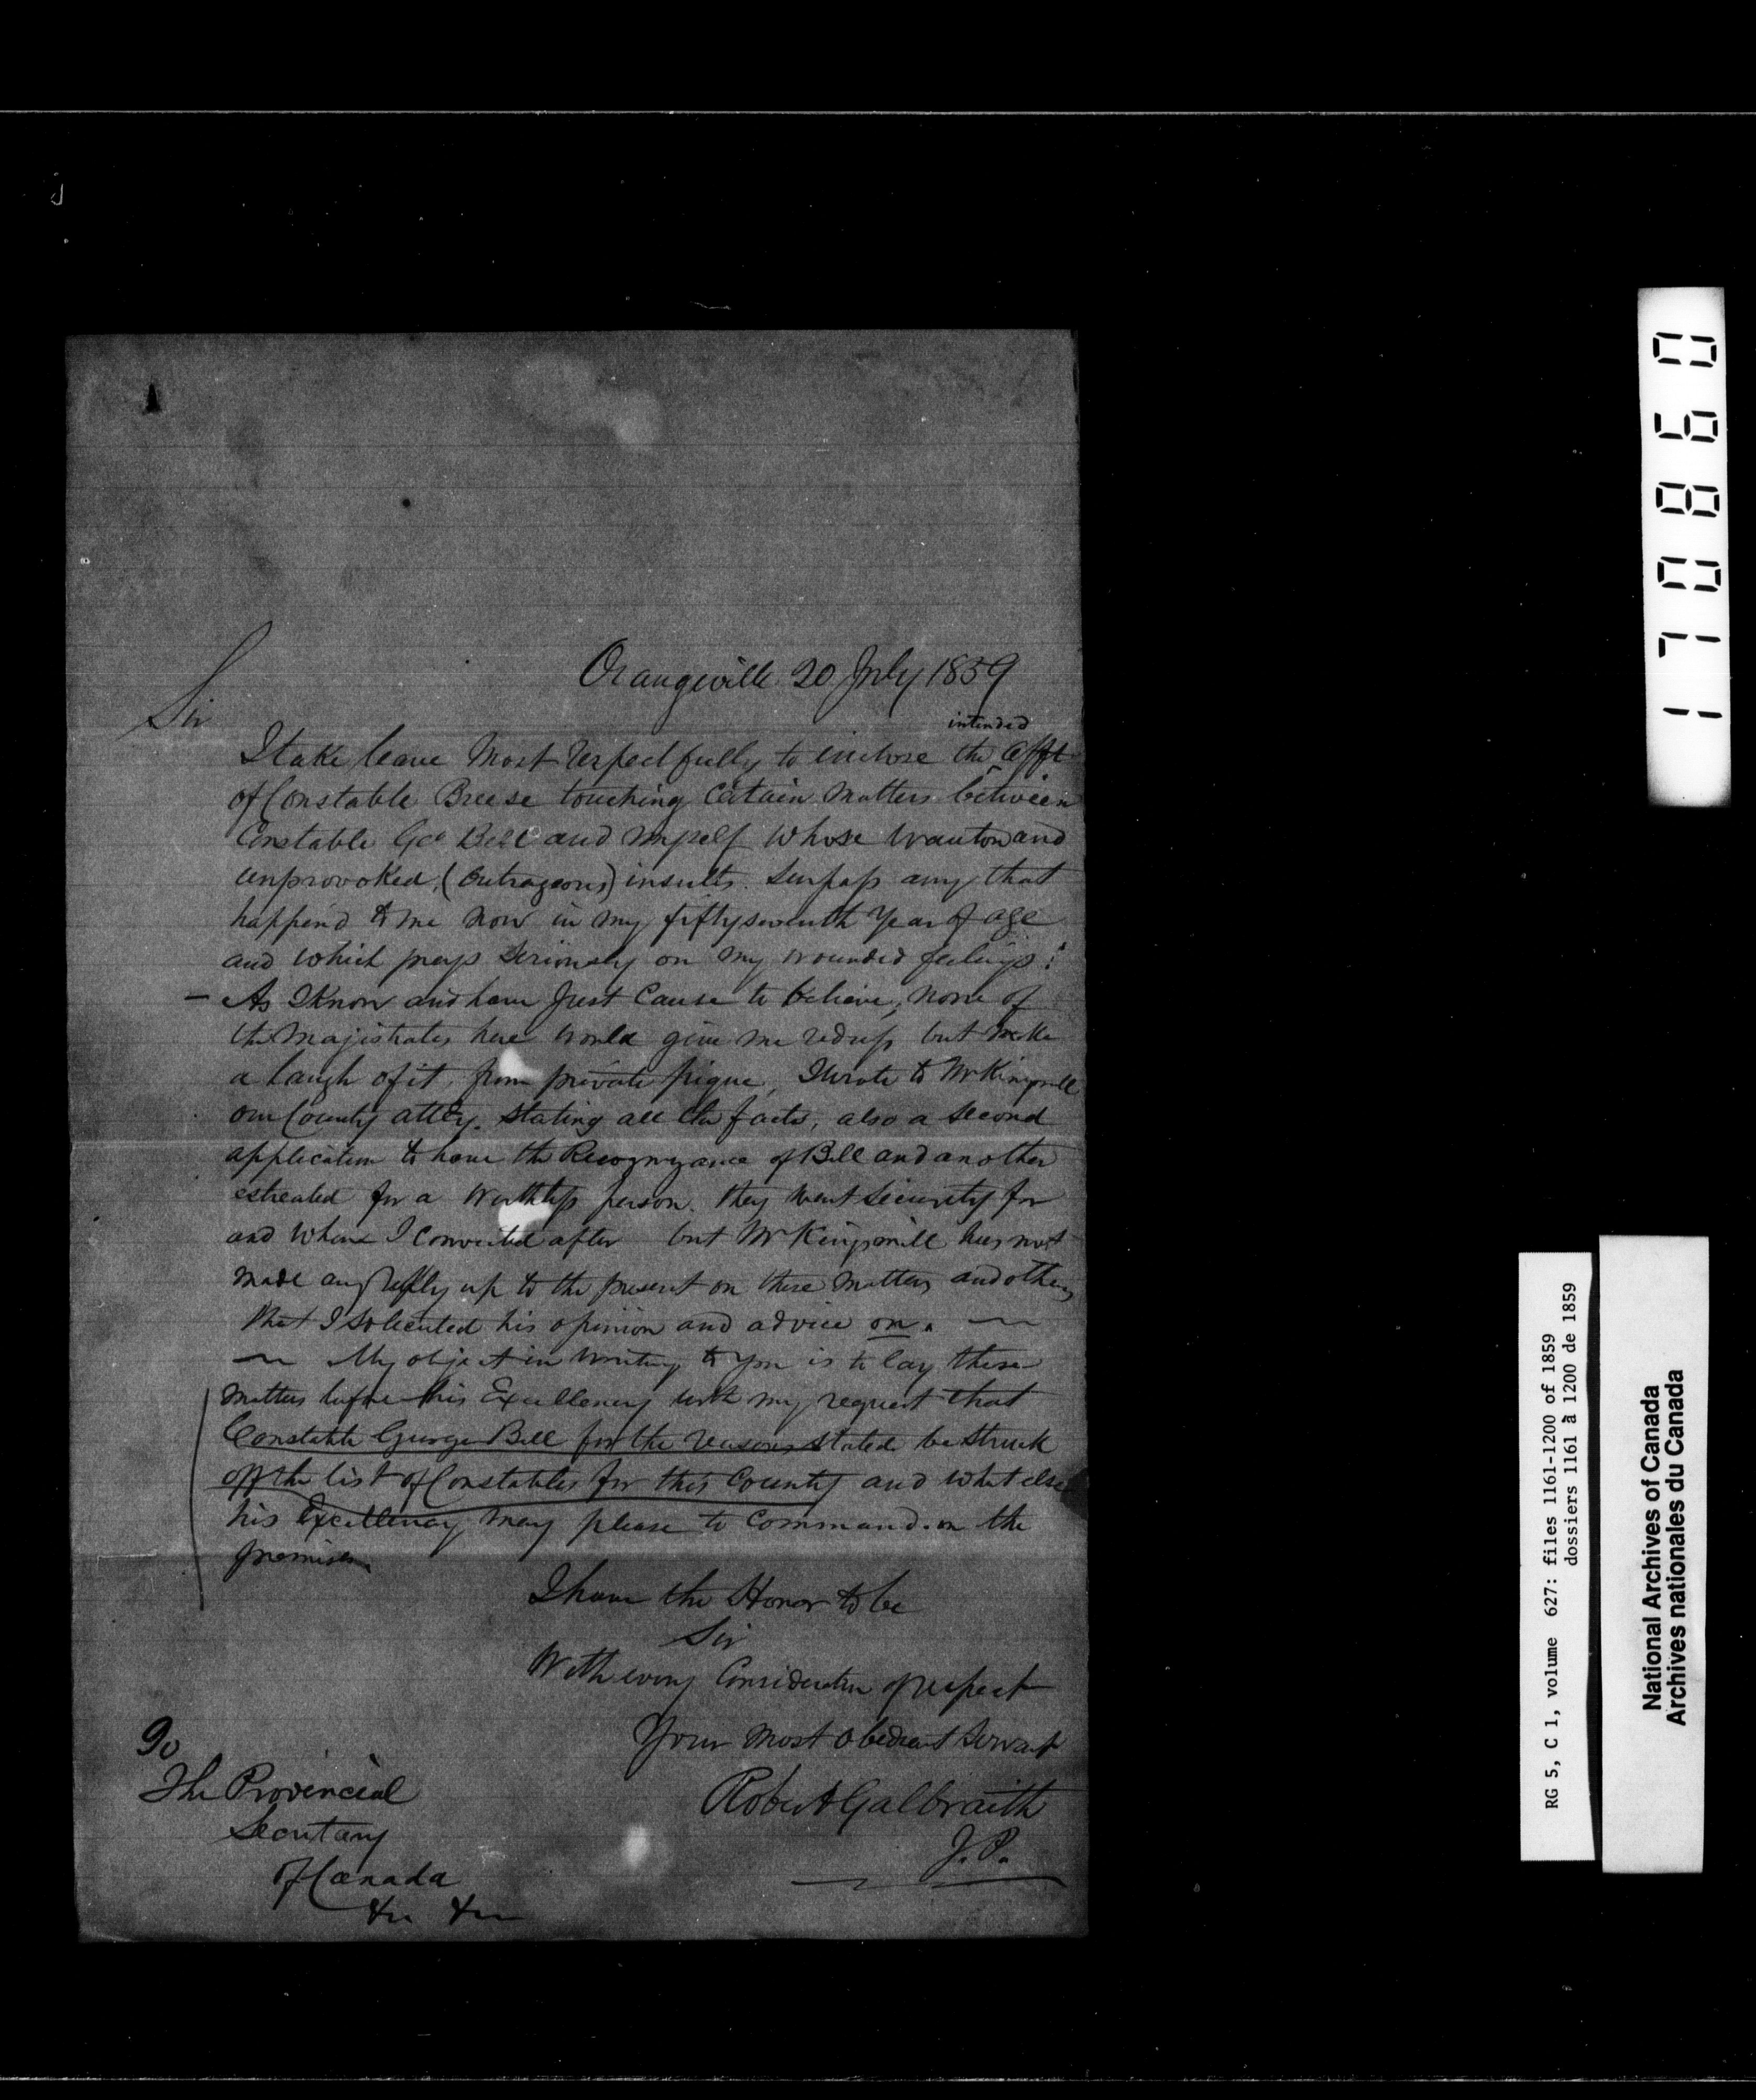 Orangeville 20 July 1859
Sir
intended
I take leave Most respectfully to inclose the Afft
of Constable Breese touching Certain Matters between
Constable Geo Bell and Myself Whose Wanton and
unprovoked, (Outrageous) insults. Surpass any that
happend to me Now in my fifty seventh Year of age
and which preys Seriously on My wounded feelings:
– As I Know and have Just Cause to believe, None of
the Majistrates here Would give me redress but Make
a laugh of it, from private pique, I wrote to Mr Kingsmill
our County atty. Stating all the facts, also a Second
application to have the Recognizance of Bell and another
estreated for a Worthless person. they Went Security for
and Whom I Convicted after but Mr Kingsmill has not
Made any Reply up to the present on these Matters and others
that I Solicited his opinion and advice on. —
— My object in Writing to You is to lay these
Matters before his Excellency with my request that
Constable George Bell for the reasons Stated be Struck
off the list of Constables for this County and What else
his Excellency May please to Command. on the
premises.
I have the Honor to be
Sir
With every Consideration of respect
Your Most Obedient Servant
Robert Galbraith
J.P.
To
The Provincial
Secretary
Of Canada
&c &c
170860
RG 5, C 1, volume 627: files 1161-1200 of 1859
dossiers 1161 à 1200 de 1859
National Archives of Canada
Archives nationales du Canada